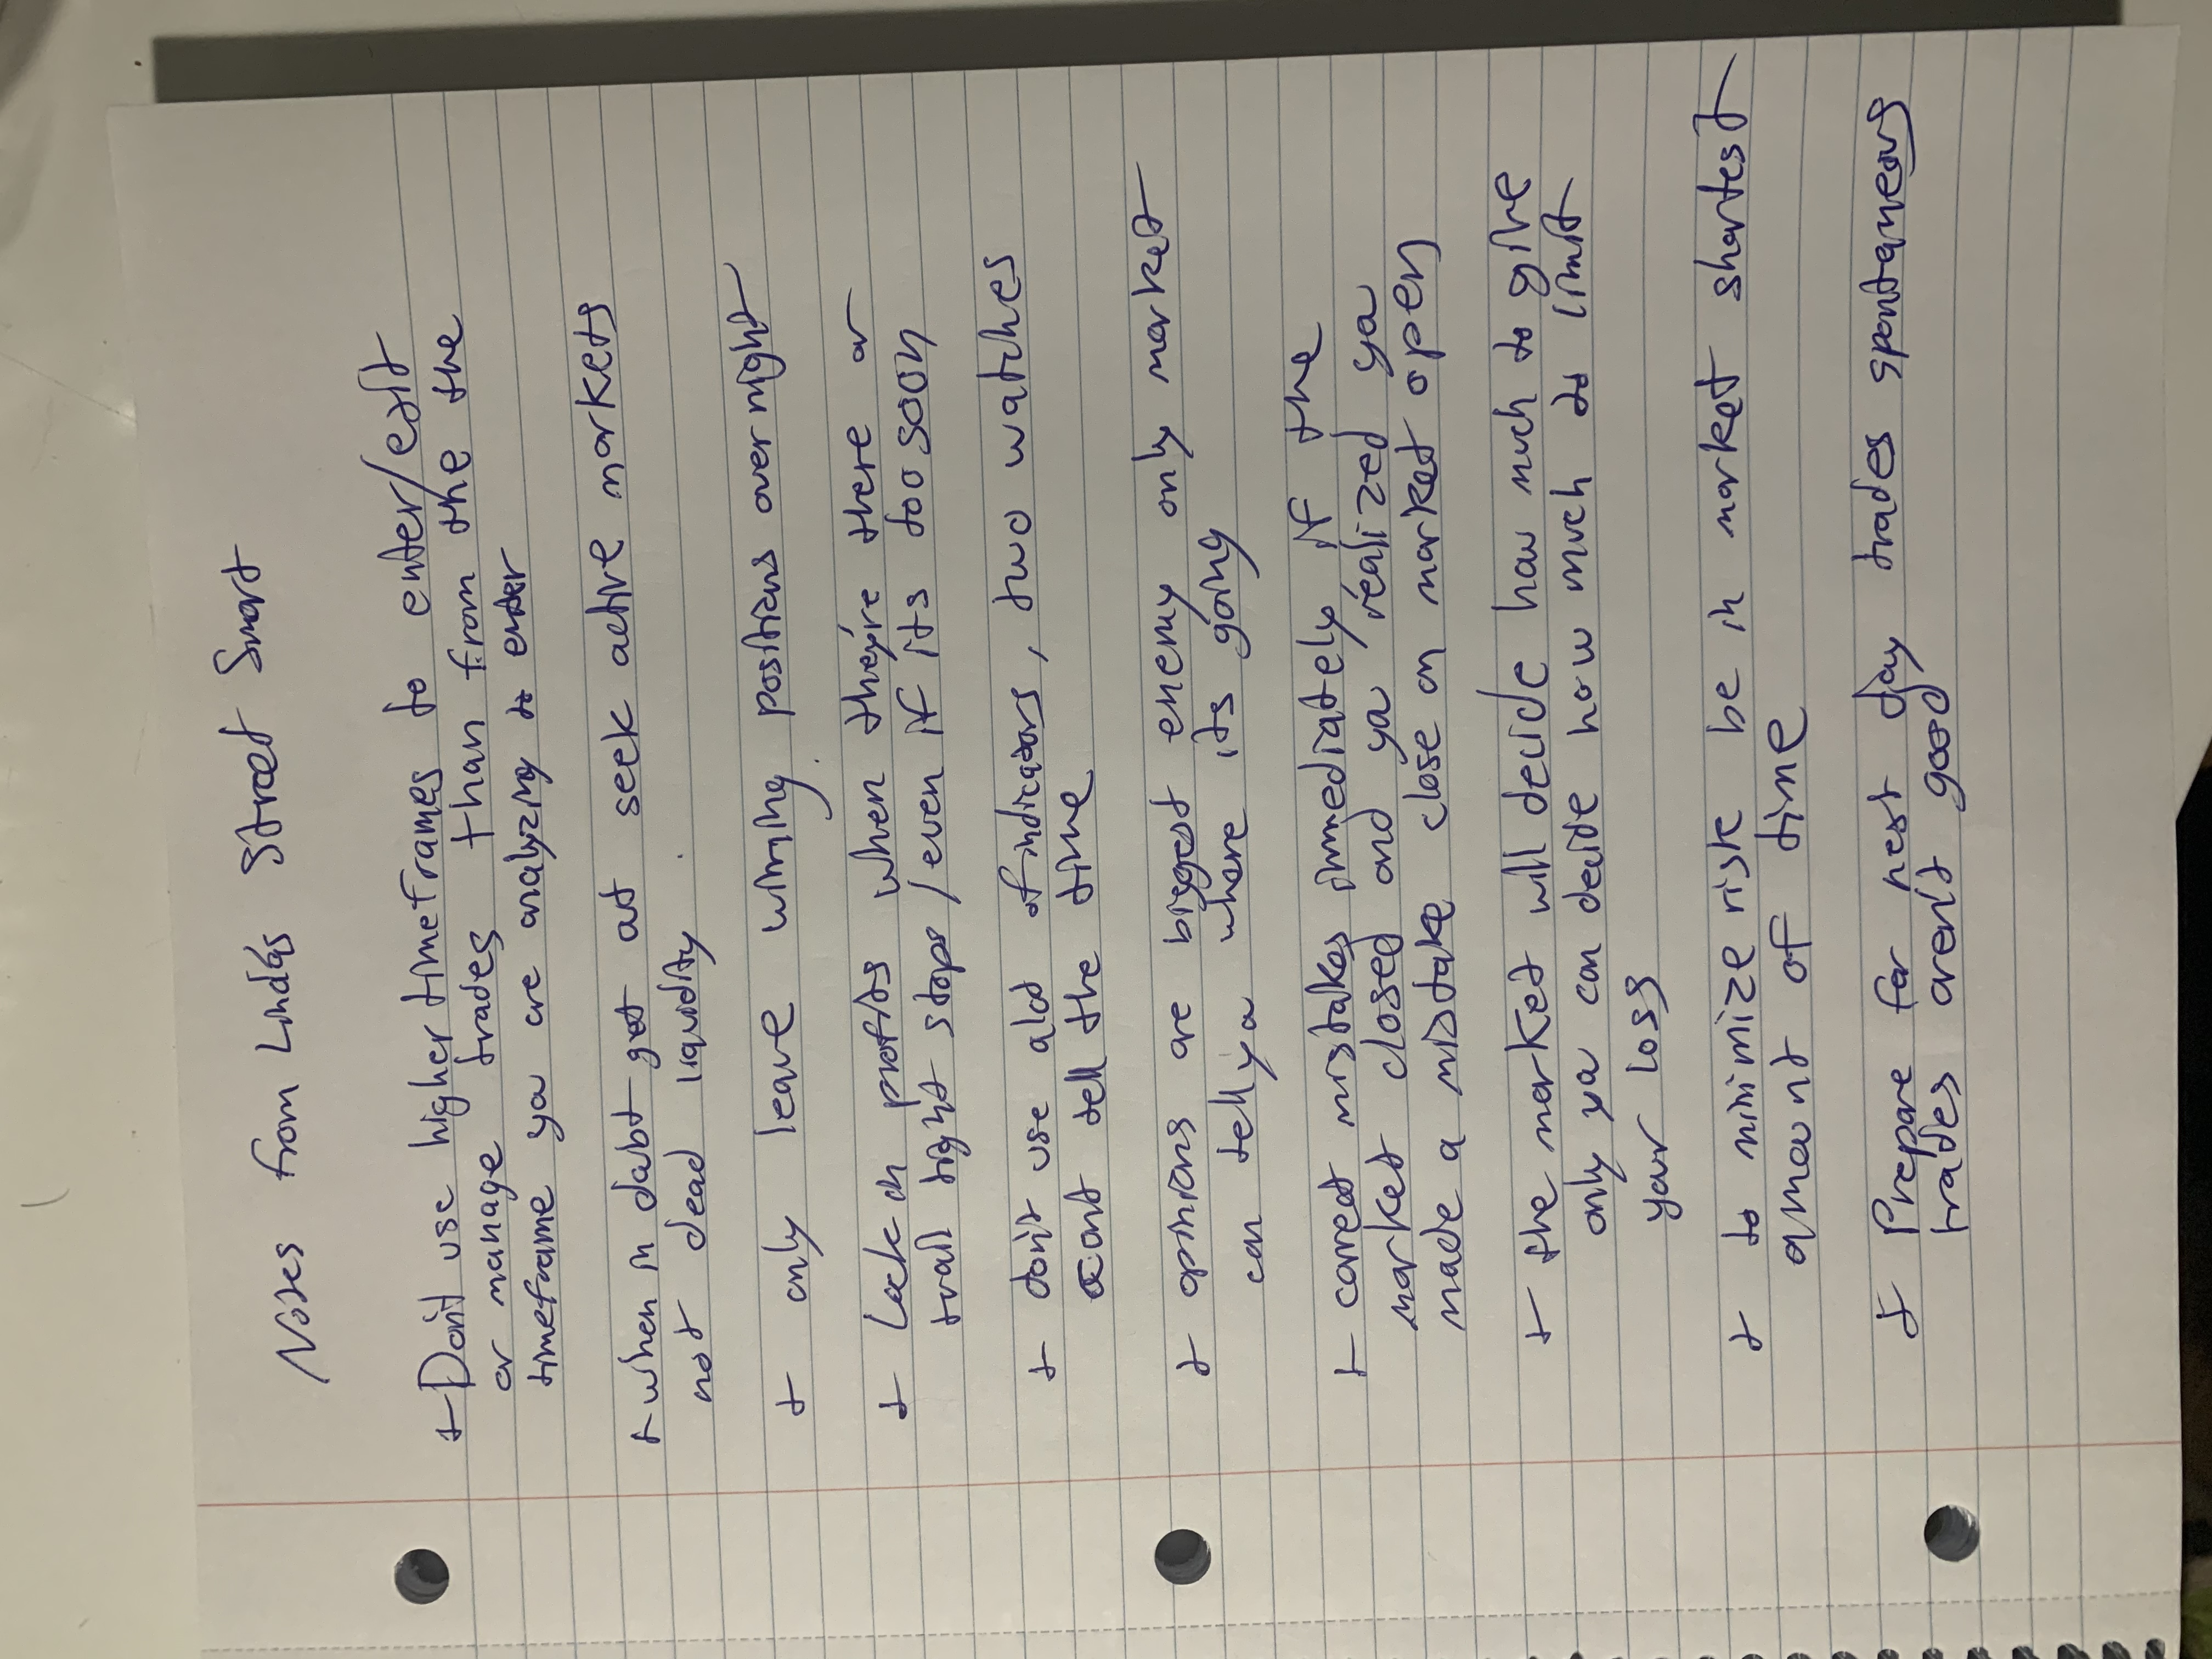 Notes from Linda's Street Smart
+ Don't use higher timeframes to enter/exit
or manage trades than from the the
timeframe you are analyzing to enter
+ when in dabt get out seek active markets
not dead liquidity
+ only leave wining positions overnight
+ Lock in profits when they're there or
trail tight stops / even if its too soon
+ don't use alot of indicators, two watches
cant tell the time
+ opinions are biggest enemy only market
can tell ya where its going
+ correct mistakes immediately if the
market closed and ya realized ya
made a mistake close on market open
+ the market will decide how much to give
only ya can decide how much to limit
your loss
+ to minimize risk be in market shortest
amount of time
+ Prepare for next day trades spontaneous
trades aren't good